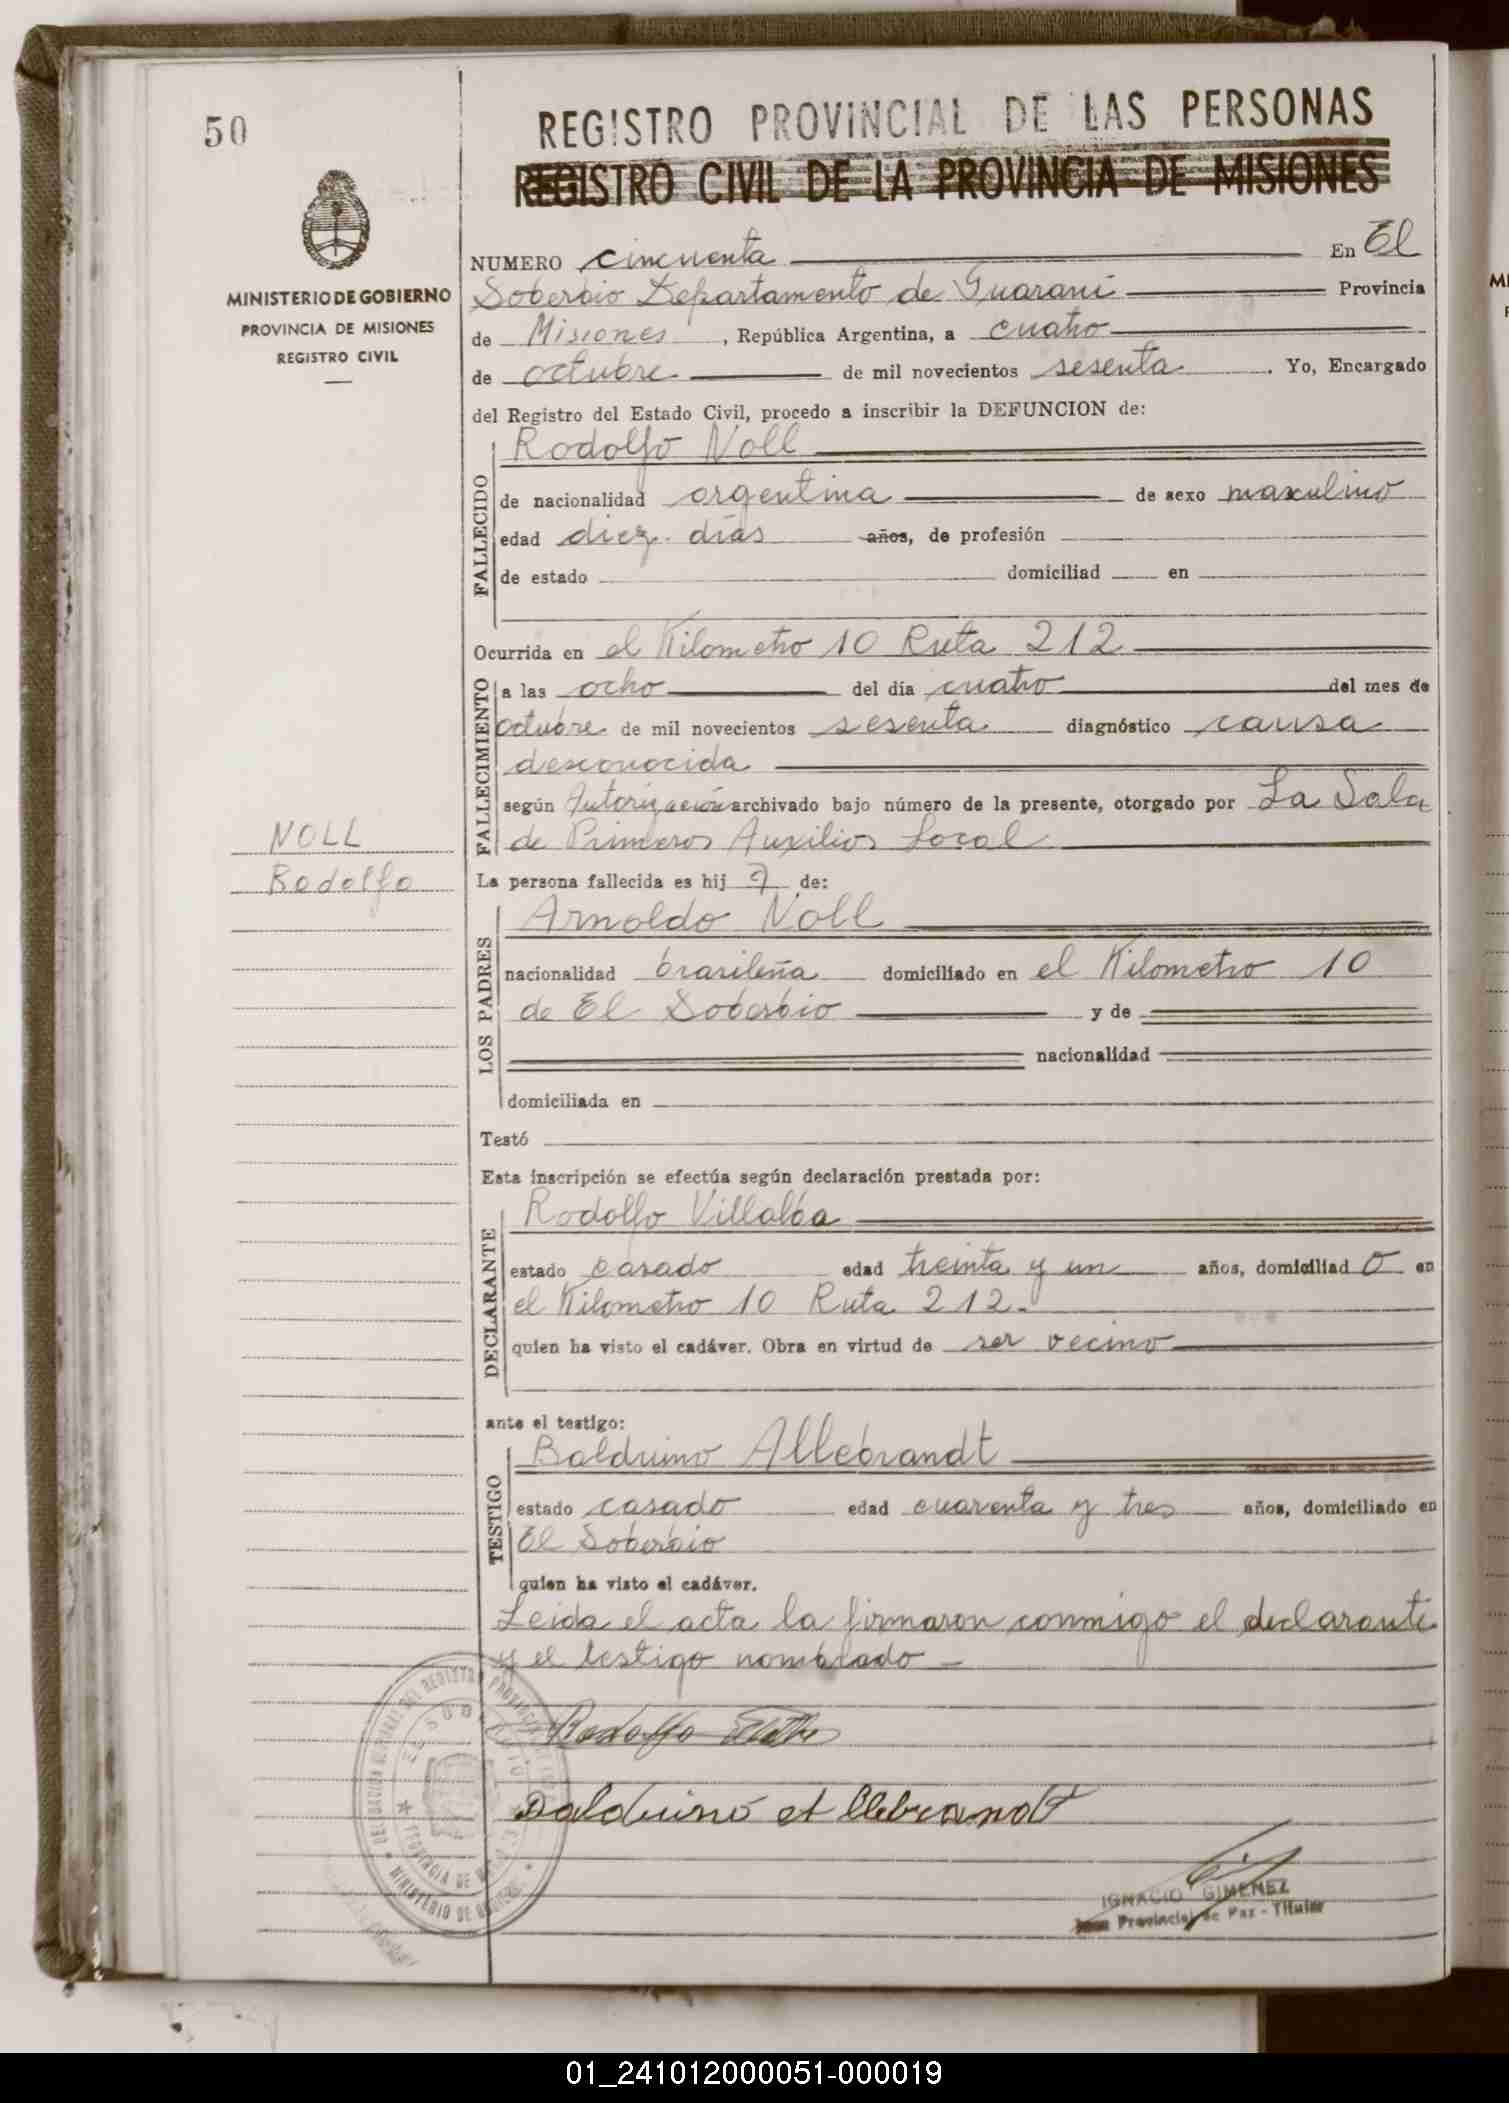 50
REGISTRO PROVINCIAL DE LAS PERSONAS
REGISTRO CIVIL DE LA PROVINCIA DE MISIONES
MINISTERIO DE GOBIERNO
PROVINCIA DE MISIONES
REGISTRO CIVIL
NUMERO cincuenta En El
Soberbio Departamento de Guaraní Provincia
de Misiones, República Argentina, a cuatro
de octubre de mil novecientos sesenta. Yo, Encargado
del Registro del Estado Civil, procedo a inscribir la DEFUNCION de:
FALLECIDO
Rodolfo Noll
de nacionalidad argentina de sexo masculino
edad diez días años, de profesión
de estado domiciliad en
Ocurrida en el Kilometro 10 Ruta 212
FALLECIMIENTO
a las ocho del día cuatro del mes de
octubre de mil novecientos sesenta diagnóstico causa
desconocida
según Autorización archivado bajo número de la presente, otorgado por La Sala
de Primeros Auxilios Local
NOLL
Rodolfo
La persona fallecida es hij o de:
LOS PADRES
Arnoldo Noll
nacionalidad brasileña domiciliado en el Kilometro 10
de El Soberbio y de
nacionalidad
domiciliada en
Testó
Esta inscripción se efectúa según declaración prestada por:
DECLARANTE
Rodolfo Villalba
estado casado edad treinta y un años, domiciliad o en
el Kilometro 10 Ruta 212.
quien ha visto el cadáver. Obra en virtud de ser vecino
ante el testigo:
TESTIGO
Balduino Allebrandt
estado casado edad cuarenta y tres años, domiciliado en
El Soberbio
quien ha visto el cadáver.
Leída el acta la firmaron conmigo el declarante
y el testigo nombrado
Rodolfo
Balduino Allebrandt
IGNACIO GIMENEZ
Juez Provincial de Paz - Titular
PROVINCIA DE
MINISTERIO DE
01_241012000051-000019